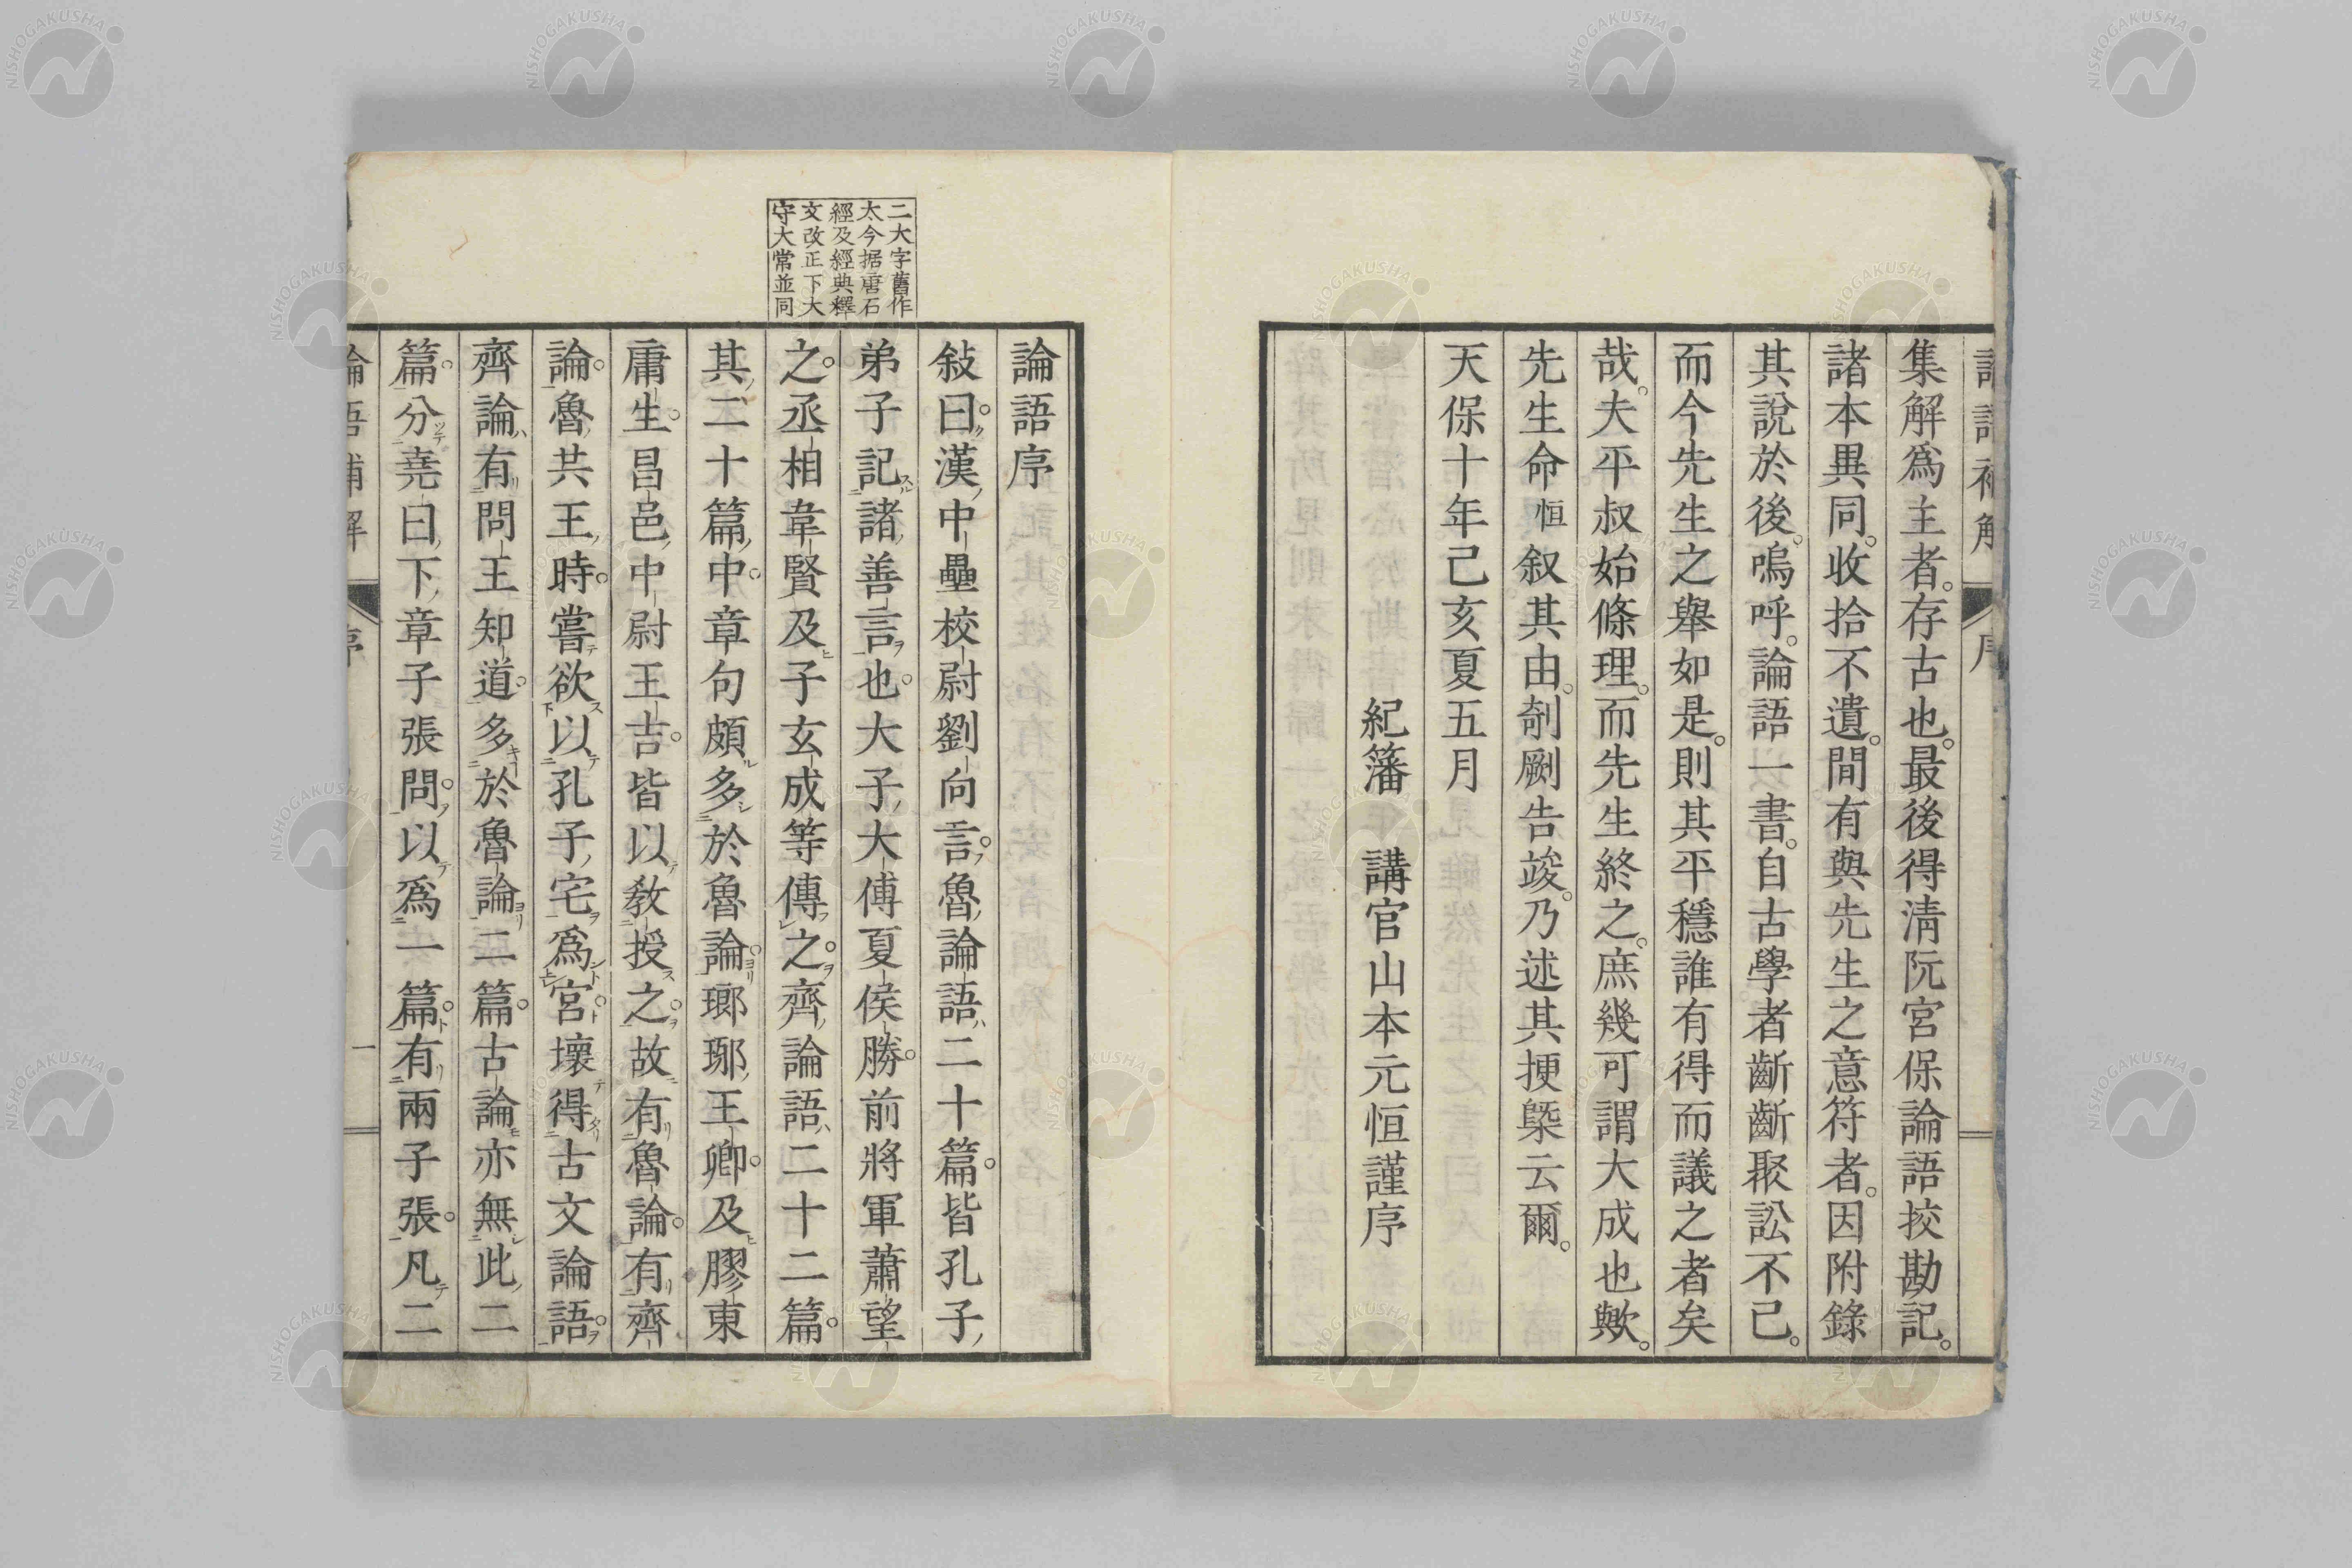 集解爲主者。存古也。最後得淸阮宮保論語挍勘記。
諸本異同。收拾不遺。間有與先生之意符者。因附錄
其說於後。嗚呼。論語一書。自古學者齗齗聚訟不已。
而今先生之舉如是。則其平穩誰有得而議之者矣
哉。夫平叔始條理。而先生終之。庶幾可謂大成也歟。
先生命恒叙其由。剞劂告竣。乃述其梗槩云爾。
天保十年己亥夏五月
紀藩 講官山本元恒謹序
二大字舊作
太今据唐石
經及經典釋
文改正下大
守大常並同
論語序
敍曰漢中壘校尉劉向言魯論語二十篇皆孔子
弟子記諸善言也大子大傅夏侯勝前將軍蕭望
之丞相韋賢及子玄成等傳之齊論語二十二篇
其二十篇中章句頗多於魯論瑯琊王卿及膠東
庸生昌邑中尉王吉皆以敎授之故有魯論有齊
論魯共王時嘗欲以孔子宅爲宮壞得古文論語
齊論有問王知道多於魯論二篇古論亦無此二
篇分堯曰下章子張問以爲一篇有兩子張凡二
論語補解 序 一
NISHOGAKUSHA